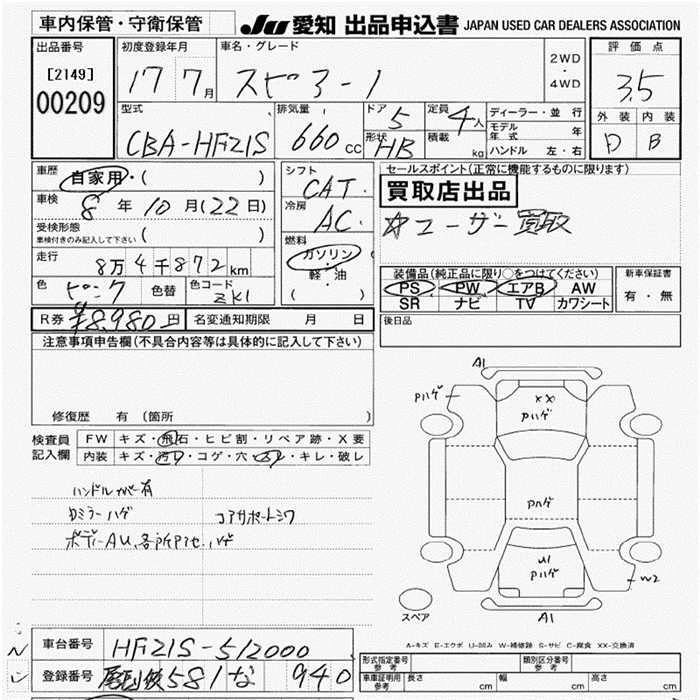 車内保管・守衛保管 JU 愛知 出品申込書 JAPAN USED CAR DEALERS ASSOCIATION
出品番号 初度登録年月 車名・グレード 2WD ・ 4WD 評価点
[2149] 17 7月 スピアーノ 3.5
00209 型式 排気量 ドア 5 定員 4人 ディーラー・並行 外装 内装
CBA-HF21S 660cc 形状 HB 積載 kg モデル年式 年 D B
ハンドル 左・右
車歴 自家用・( ) シフト CAT. セールスポイント(正常に機能するものに限ります)
車検 8年10月(22日) 冷房 AC. 買取店出品
受検形態 ( ) ☆ユーザー買取
車検付きのみ記入して下さい 燃料
走行 8万4千872km ガソリン・軽・油 ( )
色 ピンク 色替 色コード ZK1 装備品(純正品に限り○をつけてください) 新車保証書
PS PW エアB AW 有・無
SR ナビ TV カワシート
R券 ¥8,980円 名変通知期限 月 日 後日品
注意事項申告欄(不具合内容等は具体的に記入して下さい)
修復歴 有 (箇所 )
検査員記入欄 FW キズ・飛石・ヒビ割・リペア跡・X要
内装 キズ・汚レ・コゲ・穴・スレ・キレ・破レ
ハンドルカバー有
ハゲ コアサポートシワ
A1
Pハゲ
XX
Pハゲ
Pハゲ
U1
Pハゲ
W2
A1
スペア
A-キズ E-エクボ U-凹み W-補修跡 S-サビ C-腐食 XX-交換済
車台番号 HF21S-512000
登録番号 581 な 940
型式指定番号 参考 類別区分番号 参考
車庫証明用 参考 長さ cm 幅 cm 高さ cm